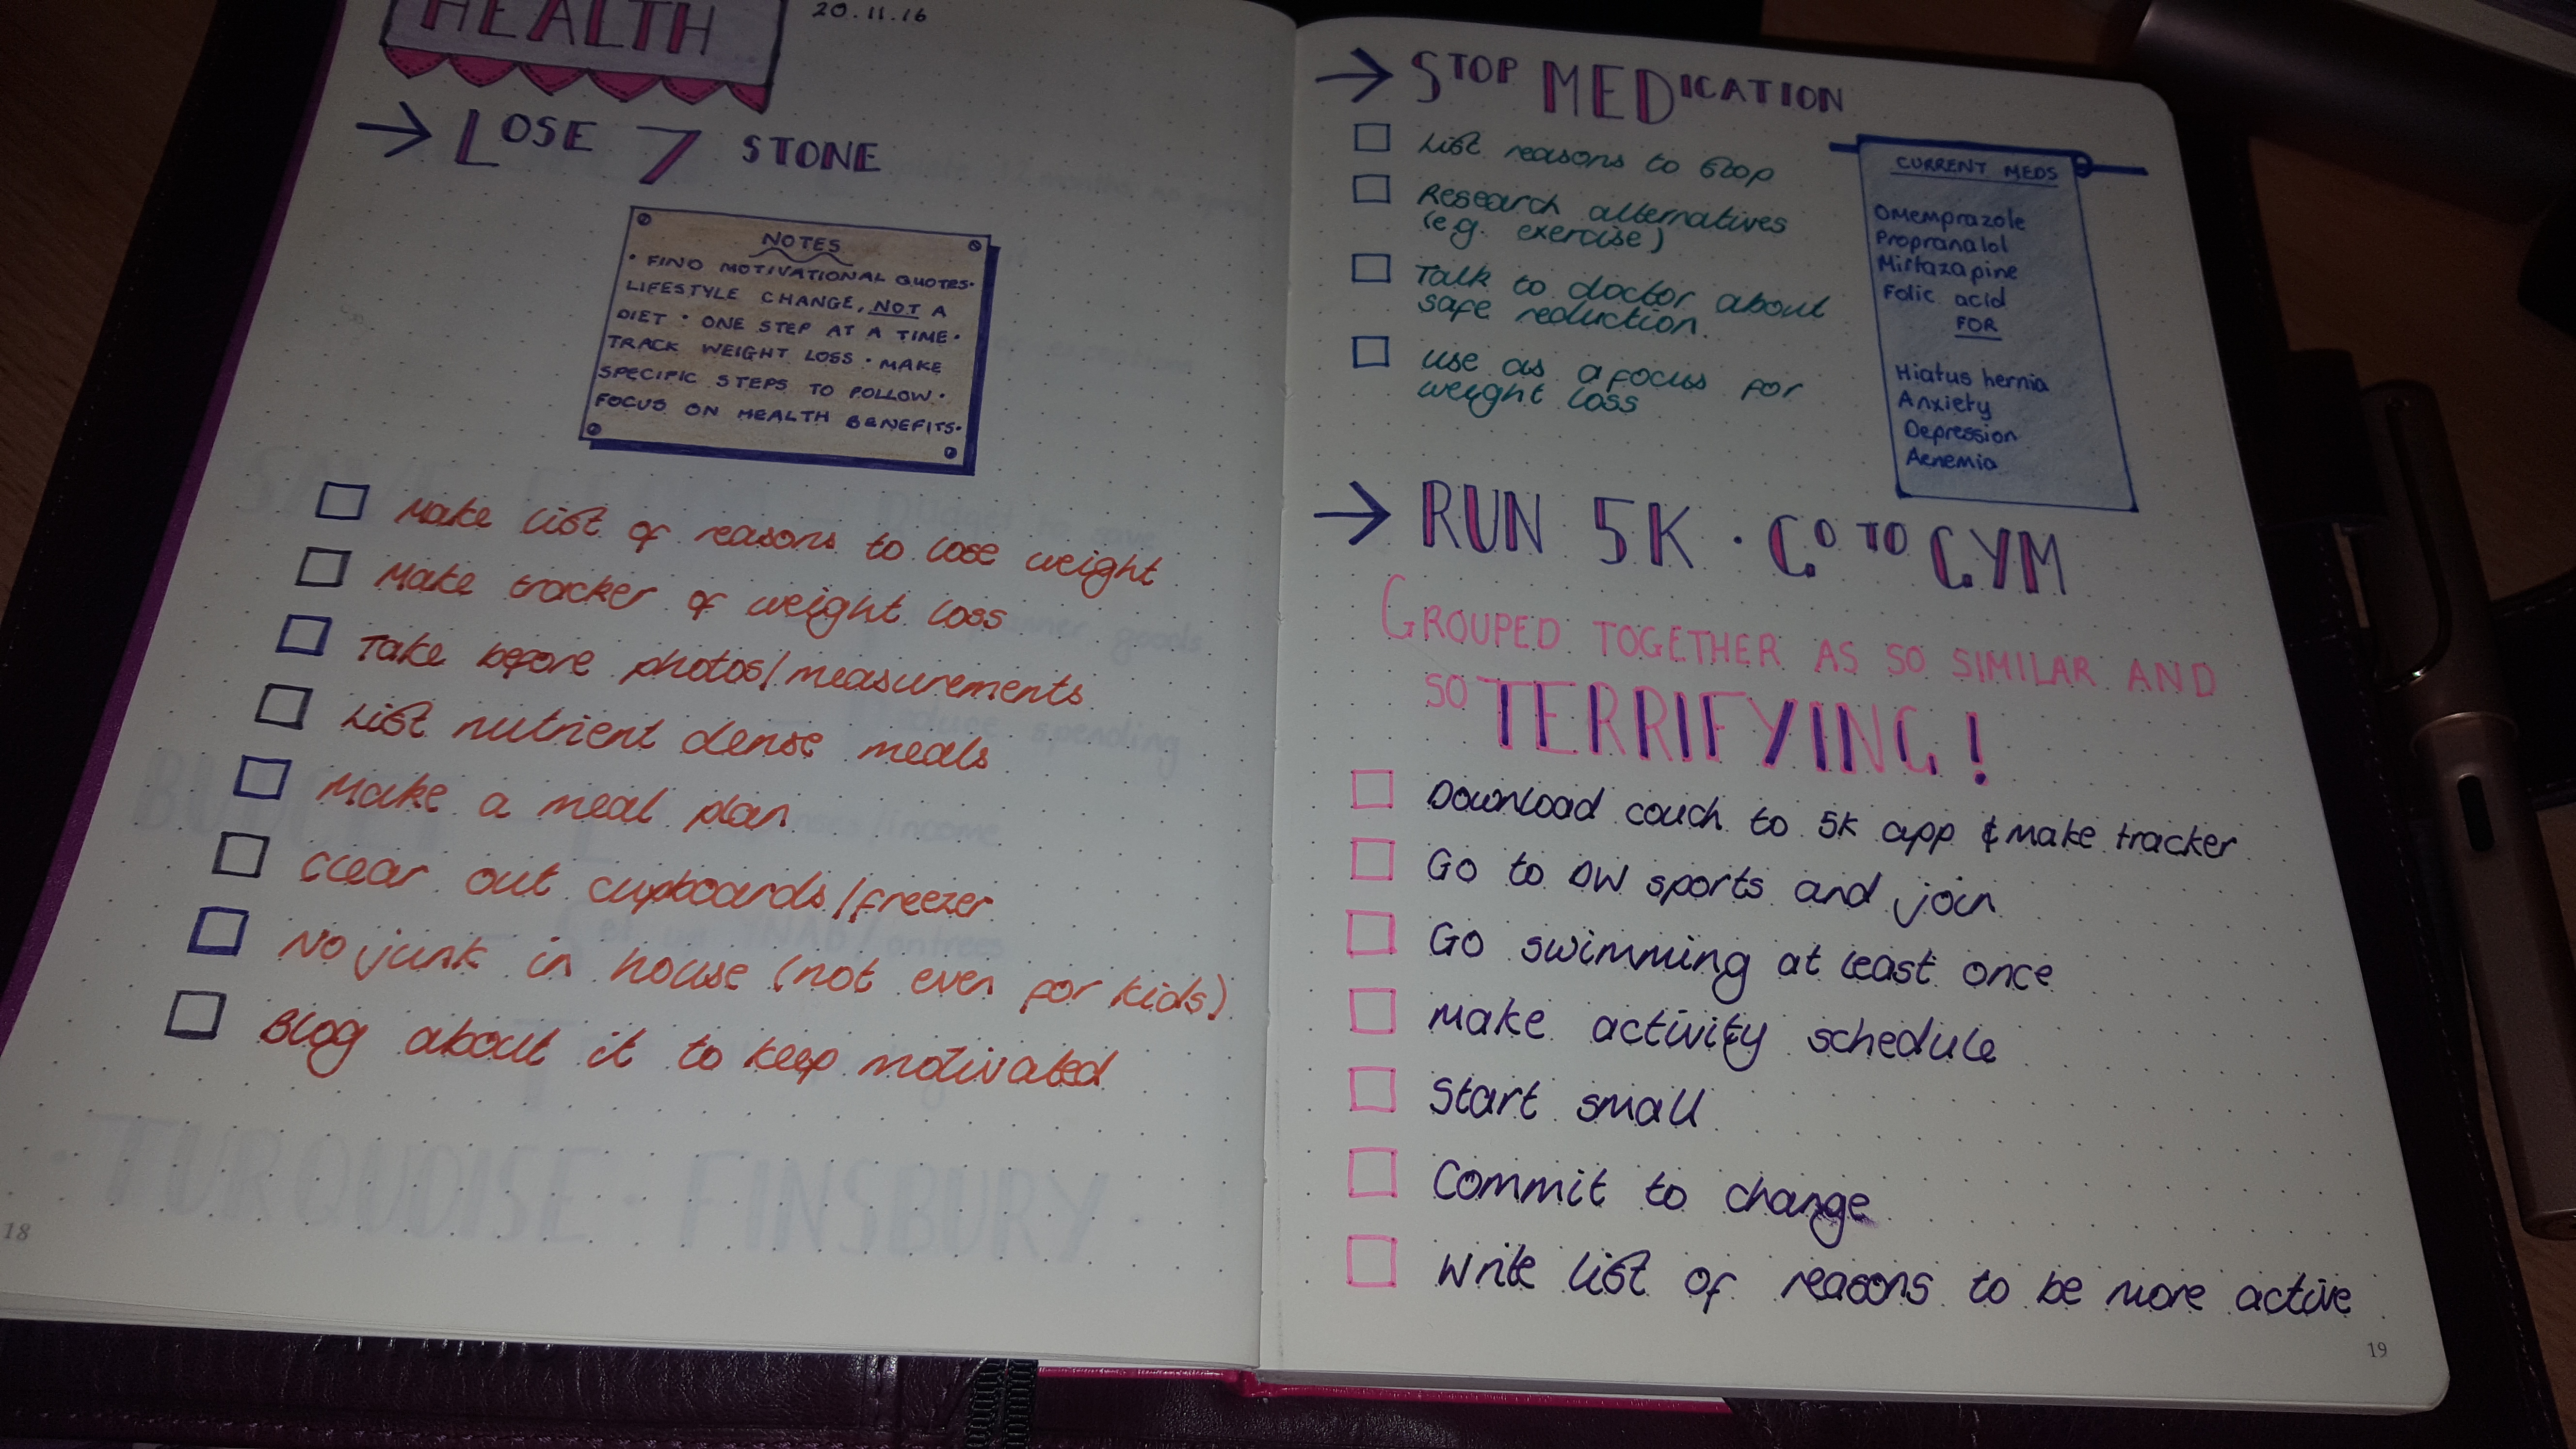 HEALTH
20.11.16
→ LOSE 7 STONE
NOTES
• FIND MOTIVATIONAL QUOTES•
LIFESTYLE CHANGE, NOT A
DIET • ONE STEP AT A TIME•
TRACK WEIGHT LOSS • MAKE
SPECIFIC STEPS TO FOLLOW•
FOCUS ON HEALTH BENEFITS•
Make list of reasons to lose weight
Make tracker of weight loss
Take before photos/measurements
List nutrient dense meals
Make a meal plan
Clear out cupboards/freezer
No junk in house (not even for kids)
Blog about it to keep motivated
TURQUOISE • FINSBURY •
18
→ STOP MEDICATION
List reasons to stop
Research alternatives
(e.g. exercise)
Talk to doctor about
safe reduction.
Use as a focus for
weight loss
CURRENT MEDS
Omemprazole
Propranalol
Mirtazapine
Folic acid
FOR
Hiatus hernia
Anxiety
Depression
Aenemia
→ RUN 5K • GO TO GYM
GROUPED TOGETHER AS SO SIMILAR AND
SO TERRIFYING!
Download couch to 5k app & make tracker
Go to DW sports and join
Go swimming at least once
Make activity schedule
Start small
Commit to change
Write list of reasons to be more active
19